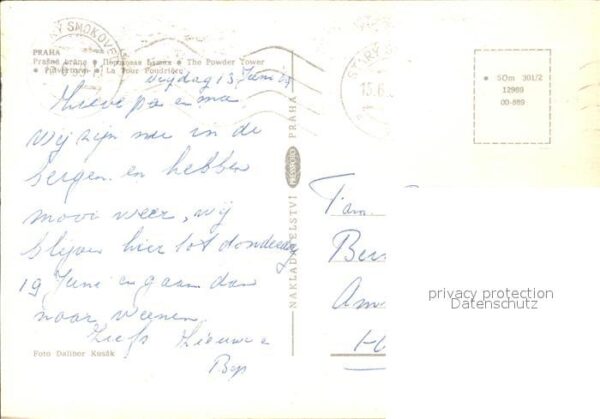 STARÝ SMOKOVEC
PRAHA
Prašná brána • Пороховая башня • The Powder Tower
• Pulverturm • La Tour Poudrière
vrijdag 13 Juni
Lieve pa en ma.
Wij zijn nu in de
bergen en hebben
mooi weer, wij
blijven hier tot donderdag
19 Juni en gaan dan
naar Weenen.
Liefs
Bep
Foto Dalibor Kusák
NAKLADATELSTVÍ PRESSFOTO PRAHA
STARÝ
13.6
SÚm 301/2
12989
00-889
Fam.
privacy protection
Datenschutz